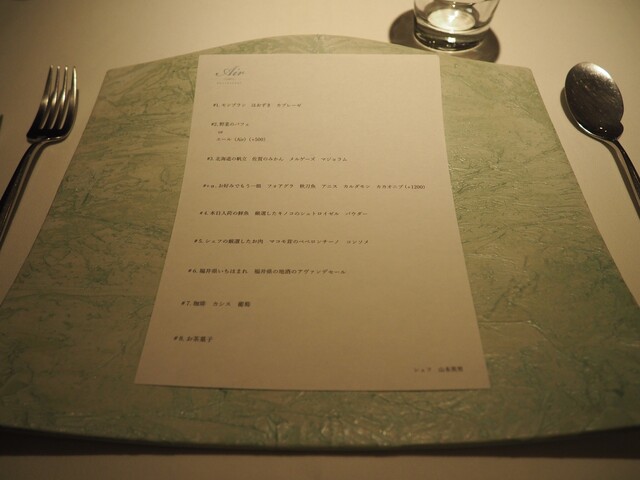 Air
#1. モンブラン ほおずき カプレーゼ
#2. 野菜のパフェ
or
ルール (Air) (+500)
#3. 北海道の帆立 佐賀のみかん メルゲーズ マジョラム
お好みでもう一椀 フォアグラ 秋刀魚 アニス カルダモン (+1200)
#4. 本日入荷の鮮魚 厳選したキノコのシュトロイゼル パウダー
#5. シェフの厳選したお肉 マコモ茸のペペロンチーノ
#6. 福井県いちほまれ 福井県の地酒のアヴァンデセール
#7. 珈琲 カシス
#8. お茶菓子
シェフ 山本